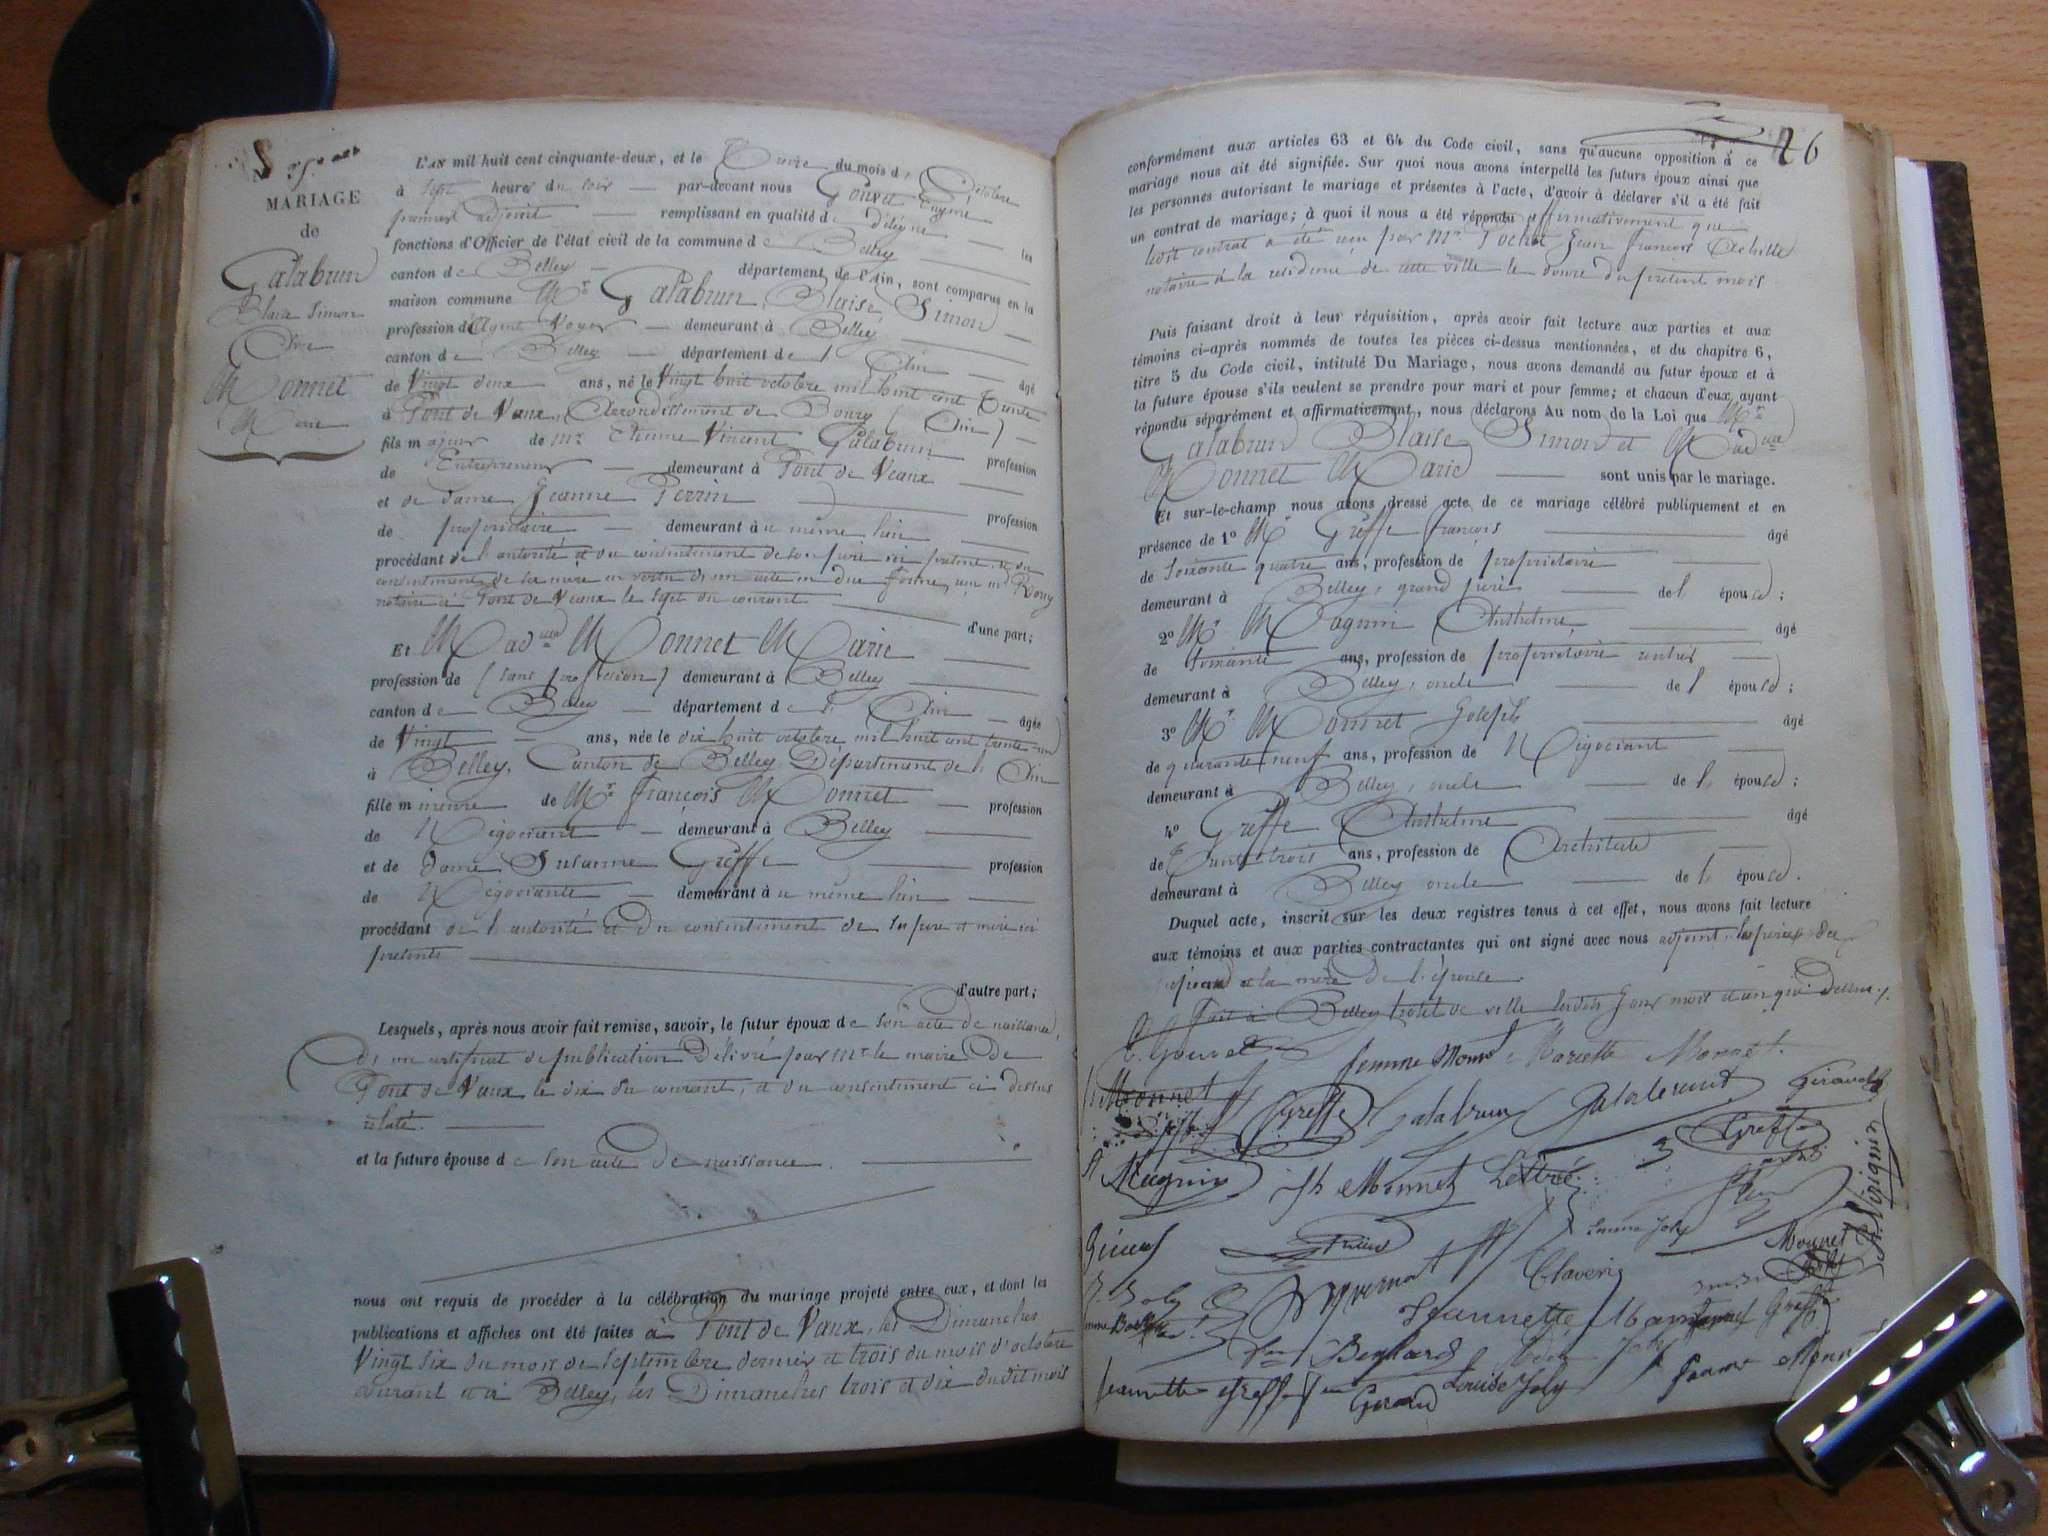 MARIAGE
de
Galabrun
Blaise Simon
Monnet
Marie
L'AN mil huit cent cinquante-deux, et le du mois d'Octobre
à sept heures du soir par-devant nous Gouvet Eugène
premier adjoint remplissant en qualité de délégué les
fonctions d'Officier de l'état civil de la commune de Belley
canton de Belley département de l'Ain, sont comparus en la
maison commune Mr Galabrun, Blaise, Simon
profession d'Agent Voyer demeurant à Belley
canton de Belley département de l'Ain âgé
de Vingt deux ans, né le Vingt huit octobre mil huit cent trente
à Pont de Vaux, Arrondissement de Bourg (Ain)
fils majeur de Mr Etienne Vincent Galabrun profession
de Entrepreneur demeurant à Pont de Vaux
et de dame Jeanne Perrin profession
de propriétaire demeurant au même lieu
procédant de l'autorité et du consentement de son père ici présent et du
consentement de sa mère en vertu d'un acte en due forme, reçu Mr
notaire à Pont de Vaux le sept du courant
d'une part;
Et Madlle Monnet Marie
profession de (sans profession) demeurant à Belley
canton de Belley département de l'Ain âgée
de Vingt ans, née le dix huit octobre mil huit cent trente-un
à Belley, Canton de Belley, Département de l'Ain
fille mineure de Mr François Monnet profession
de Négociant demeurant à Belley
et de dame Susanne Greffe profession
de Négociante demeurant au même lieu
procédant de l'autorité et du consentement de ses père et mère ici
présents
d'autre part;
Lesquels, après nous avoir fait remise, savoir, le futur époux de son acte de naissance,
d'un certificat de publication délivré par Mr le maire de
Pont de Vaux le dix du courant, et du consentement ci dessus
relaté.
et la future épouse de son acte de naissance.
nous ont requis de procéder à la célébration du mariage projeté entre eux, et dont les
publications et affiches ont été faites à Pont de Vaux, les Dimanches
Vingt six du mois de septembre dernier et trois du mois d'octobre
courant et à Belley, les Dimanches trois et dix dudit mois
26
conformément aux articles 63 et 64 du Code civil, sans qu'aucune opposition à ce
mariage nous ait été signifiée. Sur quoi nous avons interpellé les futurs époux ainsi que
les personnes autorisant le mariage et présentes à l'acte, d'avoir à déclarer s'il a été fait
un contrat de mariage; à quoi il nous a été répondu affirmativement que
contrat a été reçu par Mr Pochet Jean François Achille
notaire à la résidence de cette ville le douze du présent mois
Puis faisant droit à leur réquisition, après avoir fait lecture aux parties et aux
témoins ci-après nommés de toutes les pièces ci-dessus mentionnées, et du chapitre 6,
titre 5 du Code civil, intitulé Du Mariage, nous avons demandé au futur époux et à
la future épouse s'ils veulent se prendre pour mari et pour femme; et chacun d'eux ayant
répondu séparément et affirmativement, nous déclarons Au nom de la Loi que Mr
Galabrun Blaise, Simon et Madlle
Monnet Marie sont unis par le mariage.
Et sur-le-champ nous avons dressé acte de ce mariage célébré publiquement et en
présence de 1° Mr Greffe François âgé
de soixante quatre ans, profession de propriétaire
demeurant à Belley, grand père de l'épouse;
2° Mr Anthelme âgé
de ans, profession de propriétaire rentier
demeurant à Belley, oncle de l'épouse;
3° Mr Monnet Joseph âgé
de quarante neuf ans, profession de Négociant
demeurant à Belley, oncle de l'épouse;
4° Greffe Anthelme âgé
de trente trois ans, profession de Architecte
demeurant à Belley oncle de l'épouse.
Duquel acte, inscrit sur les deux registres tenus à cet effet, nous avons fait lecture
aux témoins et aux parties contractantes qui ont signé avec nous adjoint, les pères des
époux et la mère de l'épouse.
Fait à Belley hôtel de ville lesdits jour mois et an que dessus.
E. Gouvet femme Monnet Mariette Monnet.
Monnet Greffe Galabrun Galabrun Giraud
Greffe
Magnin Jh Monnet
Clavery
J. Joly Jeannette
Louise Joly
Jeannette Greffe Girard